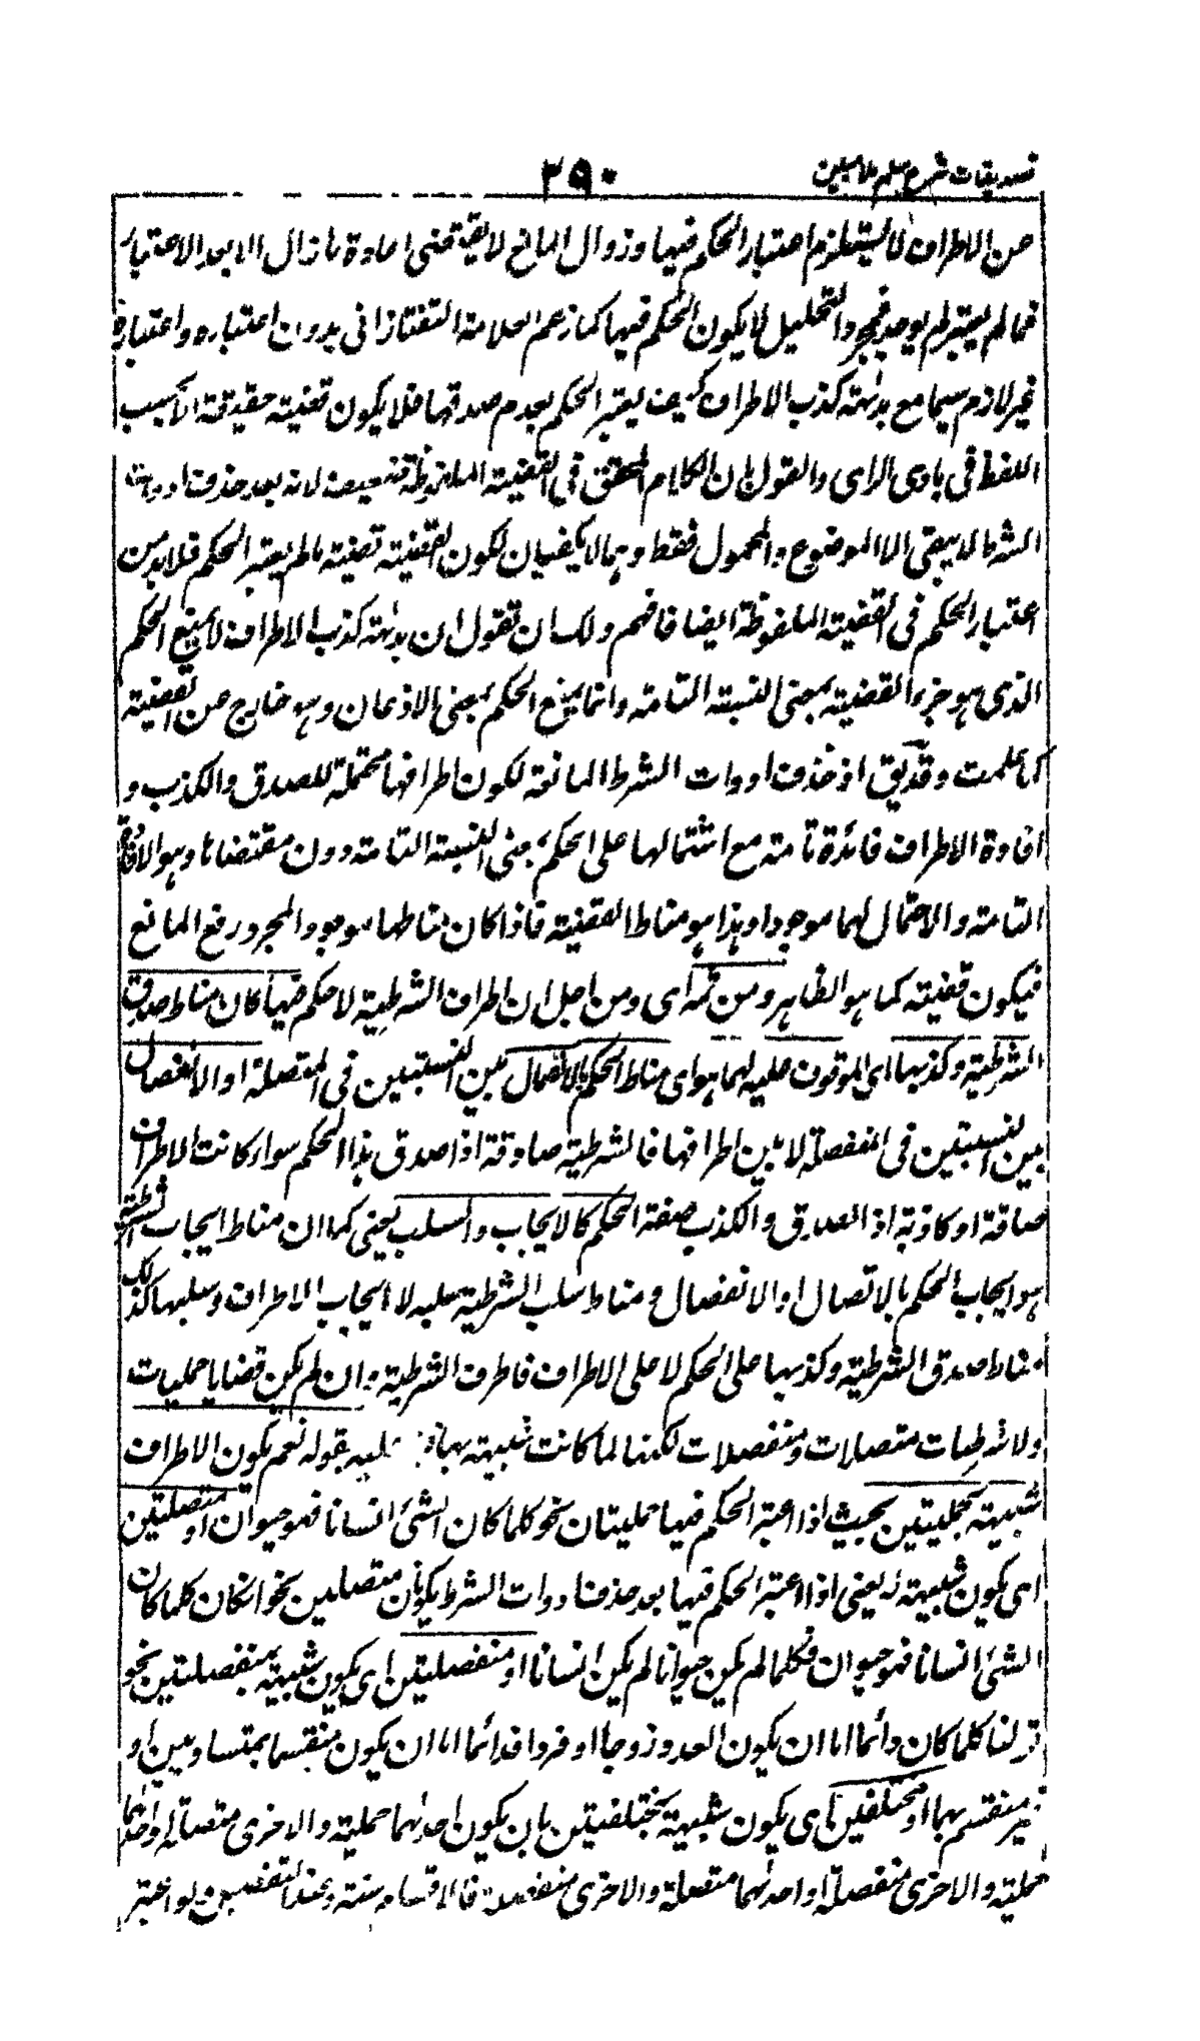 تصديقات شرح سلم ملا مبين
٢٩٠
عن الاطراف لا يستلزم اعتبار الحكم فيها وزوال المانع لا يقتضى اعادة ما زال الا بعد الاعتبار
فما لم يعتبر لم يوجد فمجرد التحليل لا يكون الحكم فيها كما زعم العلامة التفتازانى بدون اعتباره واعتباره
غير لازم سيما مع بداهته كذب الاطراف كيف يعتبر الحكم بعدم صدقها فلا يكون قضيته حقيقة الا بحسب
اللفظ فى بادى الراى والقول بان الكلام المحقق فى القضيته الملفوظة لانه بعد حذف ادوات
الشرط لا يبقى الا الموضوع والمحمول فقط وهما لا يكفيان لكون القضيته قضيته ما لم يعتبر الحكم فلا بد من
اعتبار الحكم فى القضيته الملفوظة ايضا فافهم ولك ان تقول ان بداهته كذب الاطراف لا يمنع الحكم
الذى هو جزء القضيته بمعنى النسبته التامته وانما يمنع الحكم بمعنى الاذعان وهو خارج عن القضيته
كما علمت وقد بقى اذ حذف ادوات الشرط المانعة لكون اطرافها محتملة للصدق والكذب و
افادة الاطراف فائدة تامته مع اشتمالها على الحكم بمعنى النسبته التامته دون مقتضاها وهو الافادة
التامته والاحتمال لهما موجودا وهذا هو مناط القضيته فاذا كان مناطها موجودا لمجرد رفع المانع
فيكون قضيته كما هو الظاهر ومن ثمه اى ومن اجل ان اطراف الشرطية لا حكم فيها كان مناط صدق
الشرطية وكذبها اى الموقوف عليه لهما هو اى مناط الحكم بالاتصال بين النسبتين فى المتصلة او الانفصال
بين النسبتين فى المنفصلة لا بين اطرافها فالشرطية صادقة اذا صدق هذا الحكم سواء كانت الاطراف
صادقة او كاذبة اذ الصدق والكذب صفة الحكم كالايجاب والسلب يعنى كما ان مناط ايجاب الشرطية
هو ايجاب الحكم بالاتصال او الانفصال ومناط سلب الشرطية سلبه لا ايجاب الاطراف وسلبها كذلك
مناط صدق الشرطية وكذبها على الحكم لا على الاطراف فاطراف الشرطية وان لم يكن قضايا حمليات
ولا شرطيات متصلات ومنفصلات لكنها لما كانت شبيهته بها عليه بقوله نعم يكون الاطراف
شبيهته بحمليتين بحيث اذا اعتبر الحكم فيها حمليتان نحو كلما كان الشئ انسانا فهو حيوان او متصلتين
اى يكون شبيهته يعنى اذا اعتبر الحكم فيها بعد حذف ادوات الشرط يكون متصلين نحو ان كان كلما كان
الشئ انسانا فهو حيوان فكلما لم يكن حيوانا لم يكن انسانا او منفصلتين اى يكون شبيهة بمنفصلتين نحو
قولنا كلما كان دائما اما ان يكون العدد زوجا او فردا فدائما اما ان يكون منقسما بمتساويين او
غير منقسم بهما او مختلفين اى يكون شبيهة بمختلفيتن بان يكون احدٰهما حملية والاخرى متصلة او احدٰهما
حملية والاخرى منفصلة او احدٰهما متصلة والاخرى منفصلة فالاقسام ستة وعند التفصيل ولو اعتبر